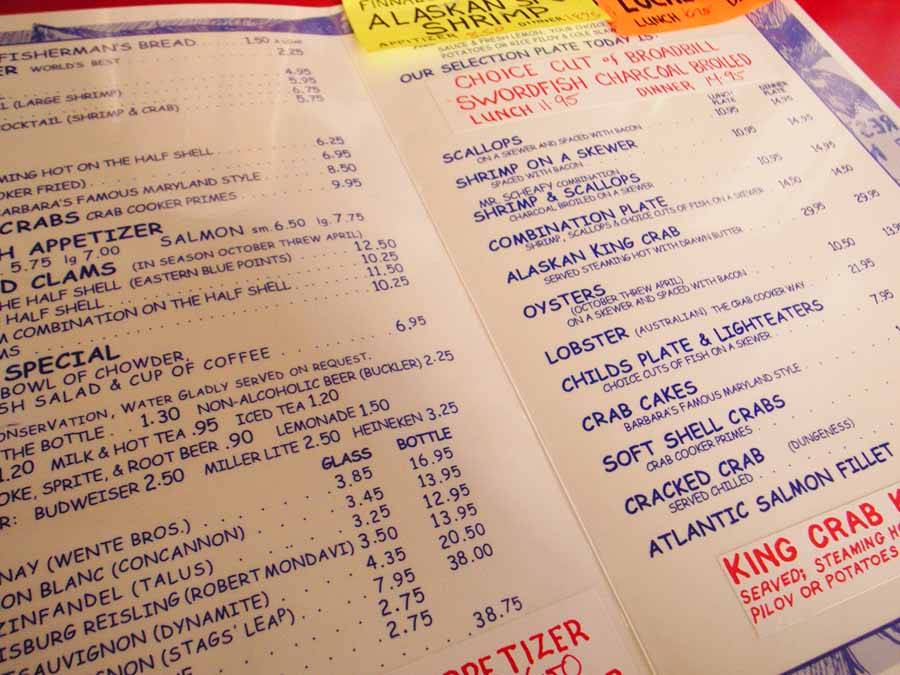 FISHERMAN'S BREAD 1.50 A LOAF
WORLD'S BEST 2.25
4.95
(LARGE SHRIMP) 5.95
6.75
COCKTAIL (SHRIMP & CRAB) 5.75
HOT ON THE HALF SHELL 6.25
FRIED) 6.95
BARBARA'S FAMOUS MARYLAND STYLE 8.50
CRABS CRAB COOKER PRIMES 9.95
APPETIZER
5.75 lg 7.00 SALMON sm. 6.50 lg. 7.75
CLAMS (IN SEASON OCTOBER THREW APRIL)
HALF SHELL (EASTERN BLUE POINTS) 12.50
HALF SHELL 10.25
COMBINATION ON THE HALF SHELL 11.50
10.25
SPECIAL
BOWL OF CHOWDER,
SALAD & CUP OF COFFEE 6.95
CONSERVATION, WATER GLADLY SERVED ON REQUEST.
THE BOTTLE . . 1.30 NON-ALCOHOLIC BEER (BUCKLER) 2.25
1.20 MILK & HOT TEA .95 ICED TEA 1.20
SPRITE, & ROOT BEER .90 LEMONADE 1.50
BUDWEISER 2.50 MILLER LITE 2.50 HEINEKEN 3.25
GLASS BOTTLE
(WENTE BROS.) 3.85 16.95
BLANC (CONCANNON) 3.45 13.95
ZINFANDEL (TALUS) 3.25 12.95
REISLING (ROBERT MONDAVI) 3.50 13.95
SAUVIGNON (DYNAMITE) 4.35 20.50
(STAGS' LEAP) 7.95 38.00
2.75
2.75
38.75
ALASKAN
SHRIMP
APPITIZER 8.50 DINNER
LUNCH
SAUCE & FRESH LEMON, YOUR CHOICE
POTATOES OR RICE PILOV & COLE SLAW
OUR SELECTION PLATE TODAY IS:
CHOICE CUT of BROADBILL
SWORDFISH CHARCOAL BROILED
LUNCH 11.95 DINNER 14.95
LUNCH PLATE DINNER PLATE
SCALLOPS 10.95 14.95
ON A SKEWER AND SPACED WITH BACON
SHRIMP ON A SKEWER 10.95 14.95
SPACED WITH BACON
MR. SCHEAFY COMBINATION
SHRIMP & SCALLOPS 10.95 14.50
CHARCOAL BROILED ON A SKEWER
COMBINATION PLATE 14.50 14.50
SHRIMP, SCALLOPS & CHOICE CUTS OF FISH ON A SKEWER
ALASKAN KING CRAB 29.95 29.95
SERVED STEAMING HOT WITH DRAWN BUTTER
OYSTERS 10.50
(OCTOBER THREW APRIL)
ON A SKEWER AND SPACED WITH BACON
LOBSTER (AUSTRALIAN) THE CRAB COOKER WAY 21.95
CHILDS PLATE & LIGHTEATERS 7.95
CHOICE CUTS OF FISH ON A SKEWER
CRAB CAKES
BARBARA'S FAMOUS MARYLAND STYLE
SOFT SHELL CRABS
CRAB COOKER PRIMES
CRACKED CRAB (DUNGENESS)
SERVED CHILLED
ATLANTIC SALMON FILLET
KING CRAB
SERVED; STEAMING
PILOV OR POTATOES